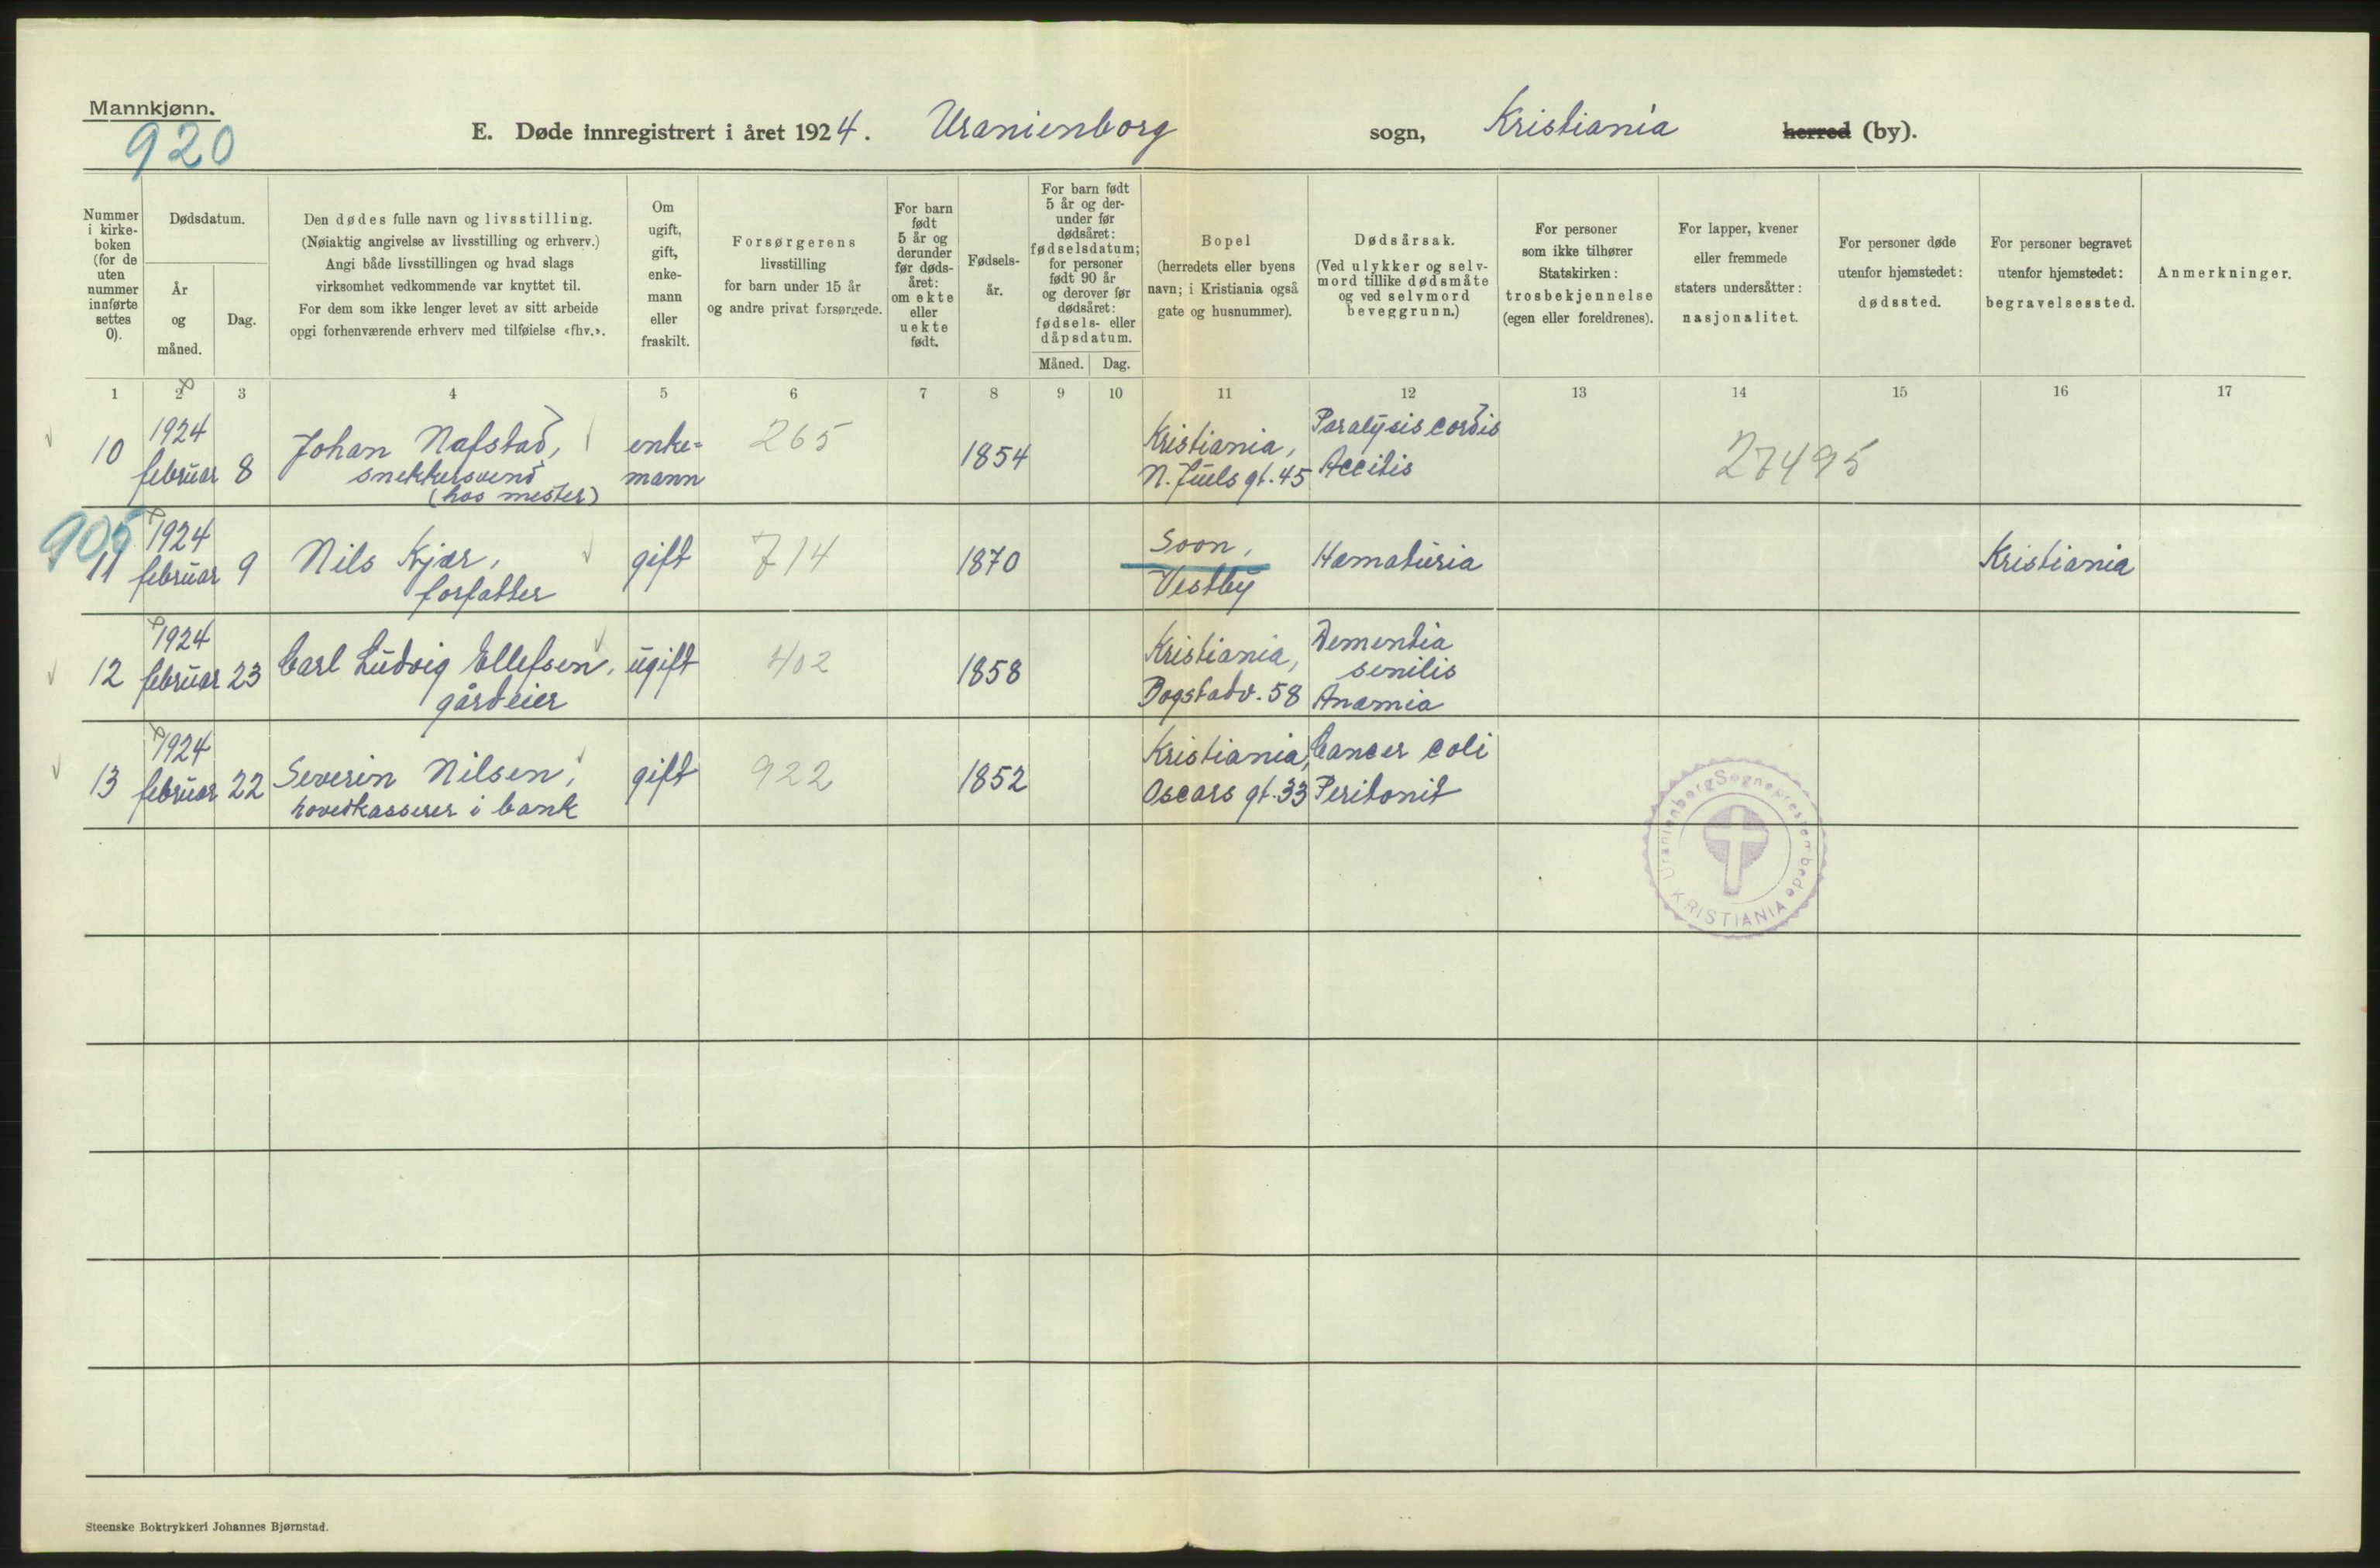 Mannkjønn.
920
E. Døde innregistrert i året 1924. Uranienborg sogn, Kristiania herred (by).
Nummer i kirke-boken (for de uten nummer innførte settes 0).
Dødsdatum.
År og måned.
Dag.
Den dødes fulle navn og livsstilling.
(Nøiaktig angivelse av livsstilling og erhverv.)
Angi både livsstillingen og hvad slags
virksomhet vedkommende var knyttet til.
For dem som ikke lenger levet av sitt arbeide
opgi forhenværende erhverv med tilføielse «fhv.».
Om ugift, gift, enke-mann eller fraskilt.
Forsørgerens
livsstilling
for barn under 15 år
og andre privat forsørgede.
For barn født 5 år og derunder før døds-året: om ekte eller uekte født.
Fødsels-år.
For barn født 5 år og der-under før dødsåret: fødselsdatum; for personer født 90 år og derover før dødsåret: fødsels- eller dåpsdatum.
Måned. Dag.
Bopel
(herredets eller byens
navn; i Kristiania også
gate og husnummer).
Dødsårsak.
(Ved ulykker og selv-
mord tillike dødsmåte
og ved selvmord
beveggrunn.)
For personer
som ikke tilhører
Statskirken:
trosbekjennelse
(egen eller foreldrenes).
For lapper, kvener
eller fremmede
staters undersåtter:
nasjonalitet.
For personer døde
utenfor hjemstedet:
dødssted.
For personer begravet
utenfor hjemstedet:
begravelsessted.
Anmerkninger.
1 2 3 4 5 6 7 8 9 10 11 12 13 14 15 16 17
10 1924 februar 8 Johan Nafstad, snekkersvend (hos mester) enke=mann 265 1854 Kristiania, N. Juels gt. 45 Paralysis cordis Accitis 27495
905
11 1924 februar 9 Nils Kjær, forfatter gift 714 1870 Soon, Vestby Hæmaturia Kristiania
12 1924 februar 23 Carl Ludvig Ellefsen, gårdeier ugift 402 1858 Kristiania, Bogstadv. 58 Dementia senilis Anæmia
13 1924 februar 22 Severin Nilsen, hovedkasserer i bank gift 922 1852 Kristiania, Oscars gt. 33 Cancer coli Peritonit
Uranienborg Sogneprestembede
KRISTIANIA
Steenske Boktrykkeri Johannes Bjørnstad.